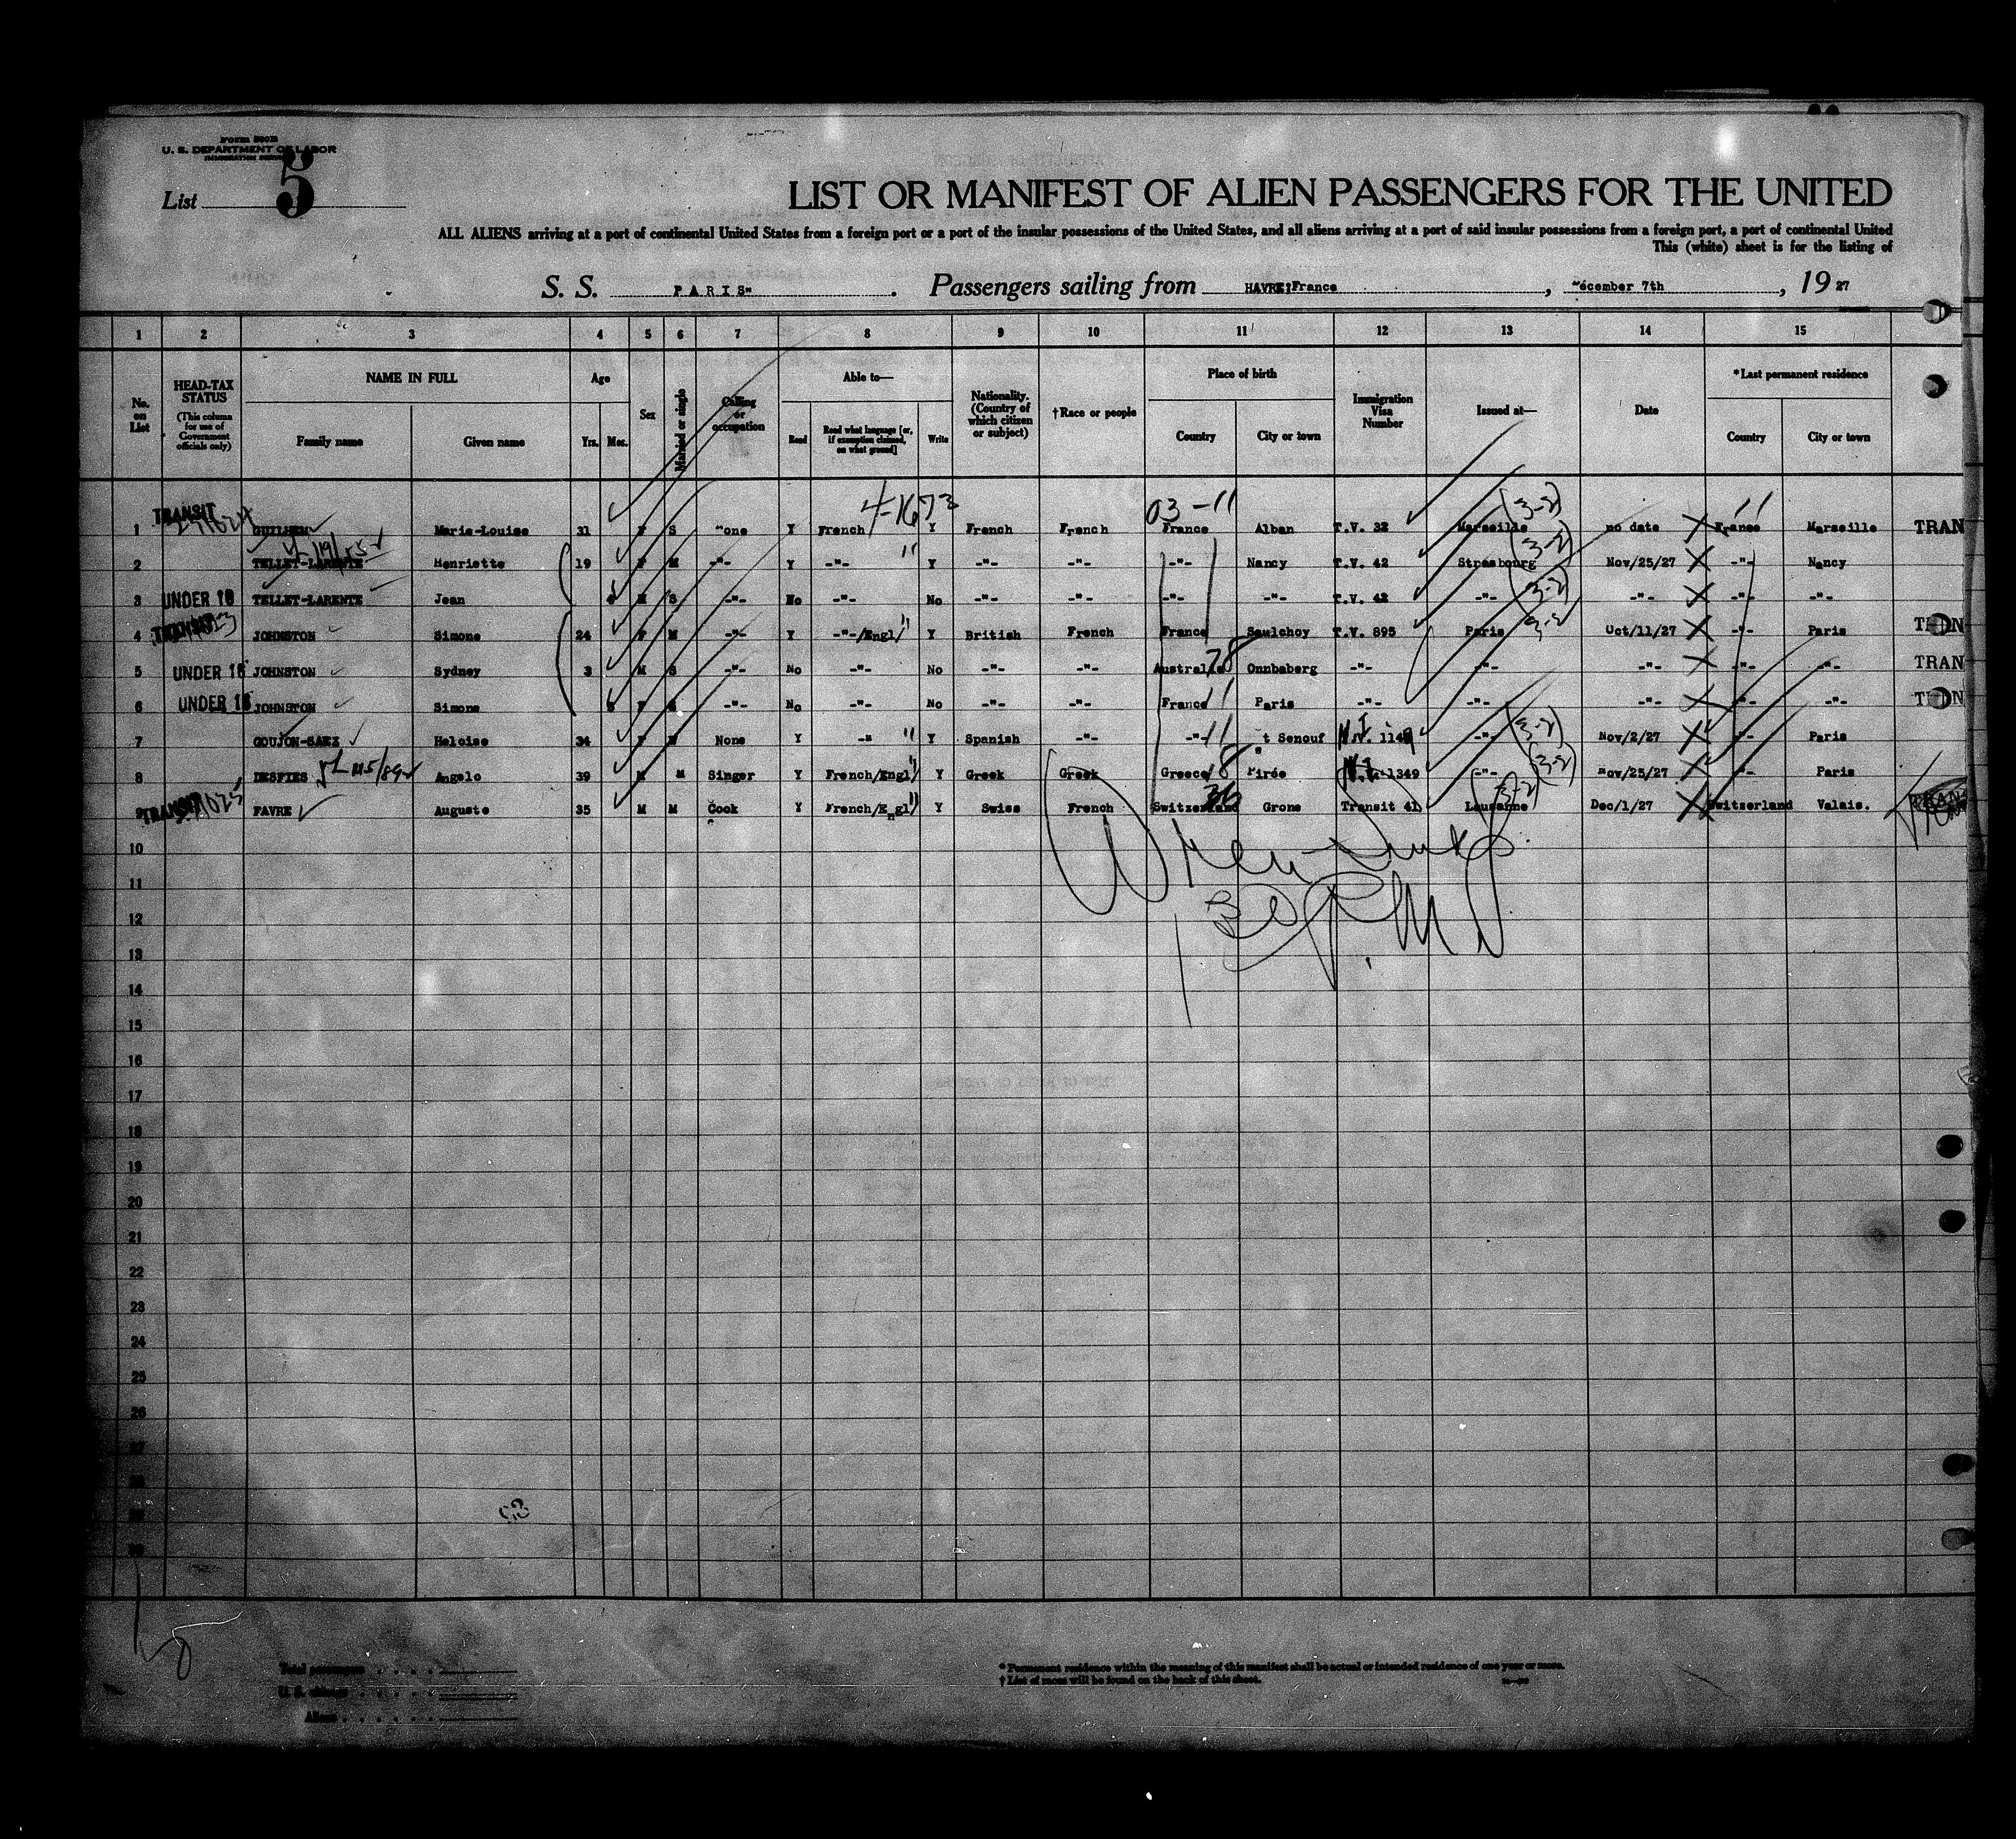 Form 500B
U. S. DEPARTMENT OF LABOR
IMMIGRATION SERVICE
List 5
LIST OR MANIFEST OF ALIEN PASSENGERS FOR THE UNITED
ALL ALIENS arriving at a port of continental United States from a foreign port or a port of the insular possessions of the United States, and all aliens arriving at a port of said insular possessions from a foreign port, a port of continental United
This (white) sheet is for the listing of
S. S. PARIS" . Passengers sailing from HAVRE:France , December 7th , 19 27
1 2 3 4 5 6 7 8 9 10 11 12 13 14 15
No. on List
HEAD-TAX STATUS (This column for use of Government officials only)
NAME IN FULL Family name Given name
Age Yrs. Mos.
Sex
Married or single
Calling or occupation
Able to— Read Read what language [or, if exemption claimed, on what ground] Write
Nationality. (Country of which citizen or subject)
†Race or people
Place of birth Country City or town
Immigration Visa Number
Issued at—
Date
*Last permanent residence Country City or town
4-1673 03-11 (3-2) 11
1 TRANSIT GUILHEM Marie-Louise 31 F S None Y French Y French French France Alban T.V. 32 Marseille no date France Marseille TRAN
2 TELLET-LARENTE Henriette 19 F M -"- Y -"- Y -"- -"- -"- Nancy T.V. 42 Strasbourg (3-2) Nov/25/27 -"- Nancy
3 UNDER 16 TELLET-LARENTE Jean M S -"- No -"- No -"- -"- -"- -"- T.V. 42 -"- (3-2) -"- -"- -"-
4 TRANSIT JOHNSTON Simone 24 F M -"- Y -"-/Engl/ Y British French France Saulchoy T.V. 895 Paris 3-2 Oct/11/27 -"- Paris
5 UNDER 16 JOHNSTON Sydney 3 M S -"- No -"- No -"- -"- Australia 78 Onnbaberg -"- -"- -"- -"- -"- TRAN
6 UNDER 16 JOHNSTON Simone F S -"- No -"- No -"- -"- France 11 Paris -"- -"- -"- -"-
7 GOUJON-SAEZ Heloise 34 F None Y -" Y Spanish -"- -"- 11 t Senouf -"- (3-2) Nov/2/27 -"- Paris
8 DESFIES Angelo 39 M M Singer Y French/Engl/ Y Greek Greek Greece Pirée 1349 -"- (3-2) Nov/25/27 -"- Paris
9 TRANSIT FAVRE Auguste 35 M M Cook Y French/Engl/ Y Swiss French Switzerland Grone Transit 41 Lausanne (3-2) Dec/1/27 Switzerland Valais.
10
11
12
13
14
15
16
17
18
19
20
21
22
23
24
25
26
27
28
29
30
Total passengers
U. S. citizens
Aliens
* Permanent residence within the meaning of this manifest shall be actual or intended residence of one year or more.
† List of races will be found on the back of this sheet.